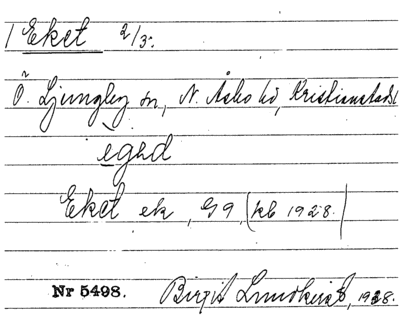 1 Eket 2/3.
Ö. Ljungby sn, N. Åsbo hd, Kristianstads l
Eket ek, G9, (kb 1928.)
Nr 5498. Birgit Lundkvist, 1928.